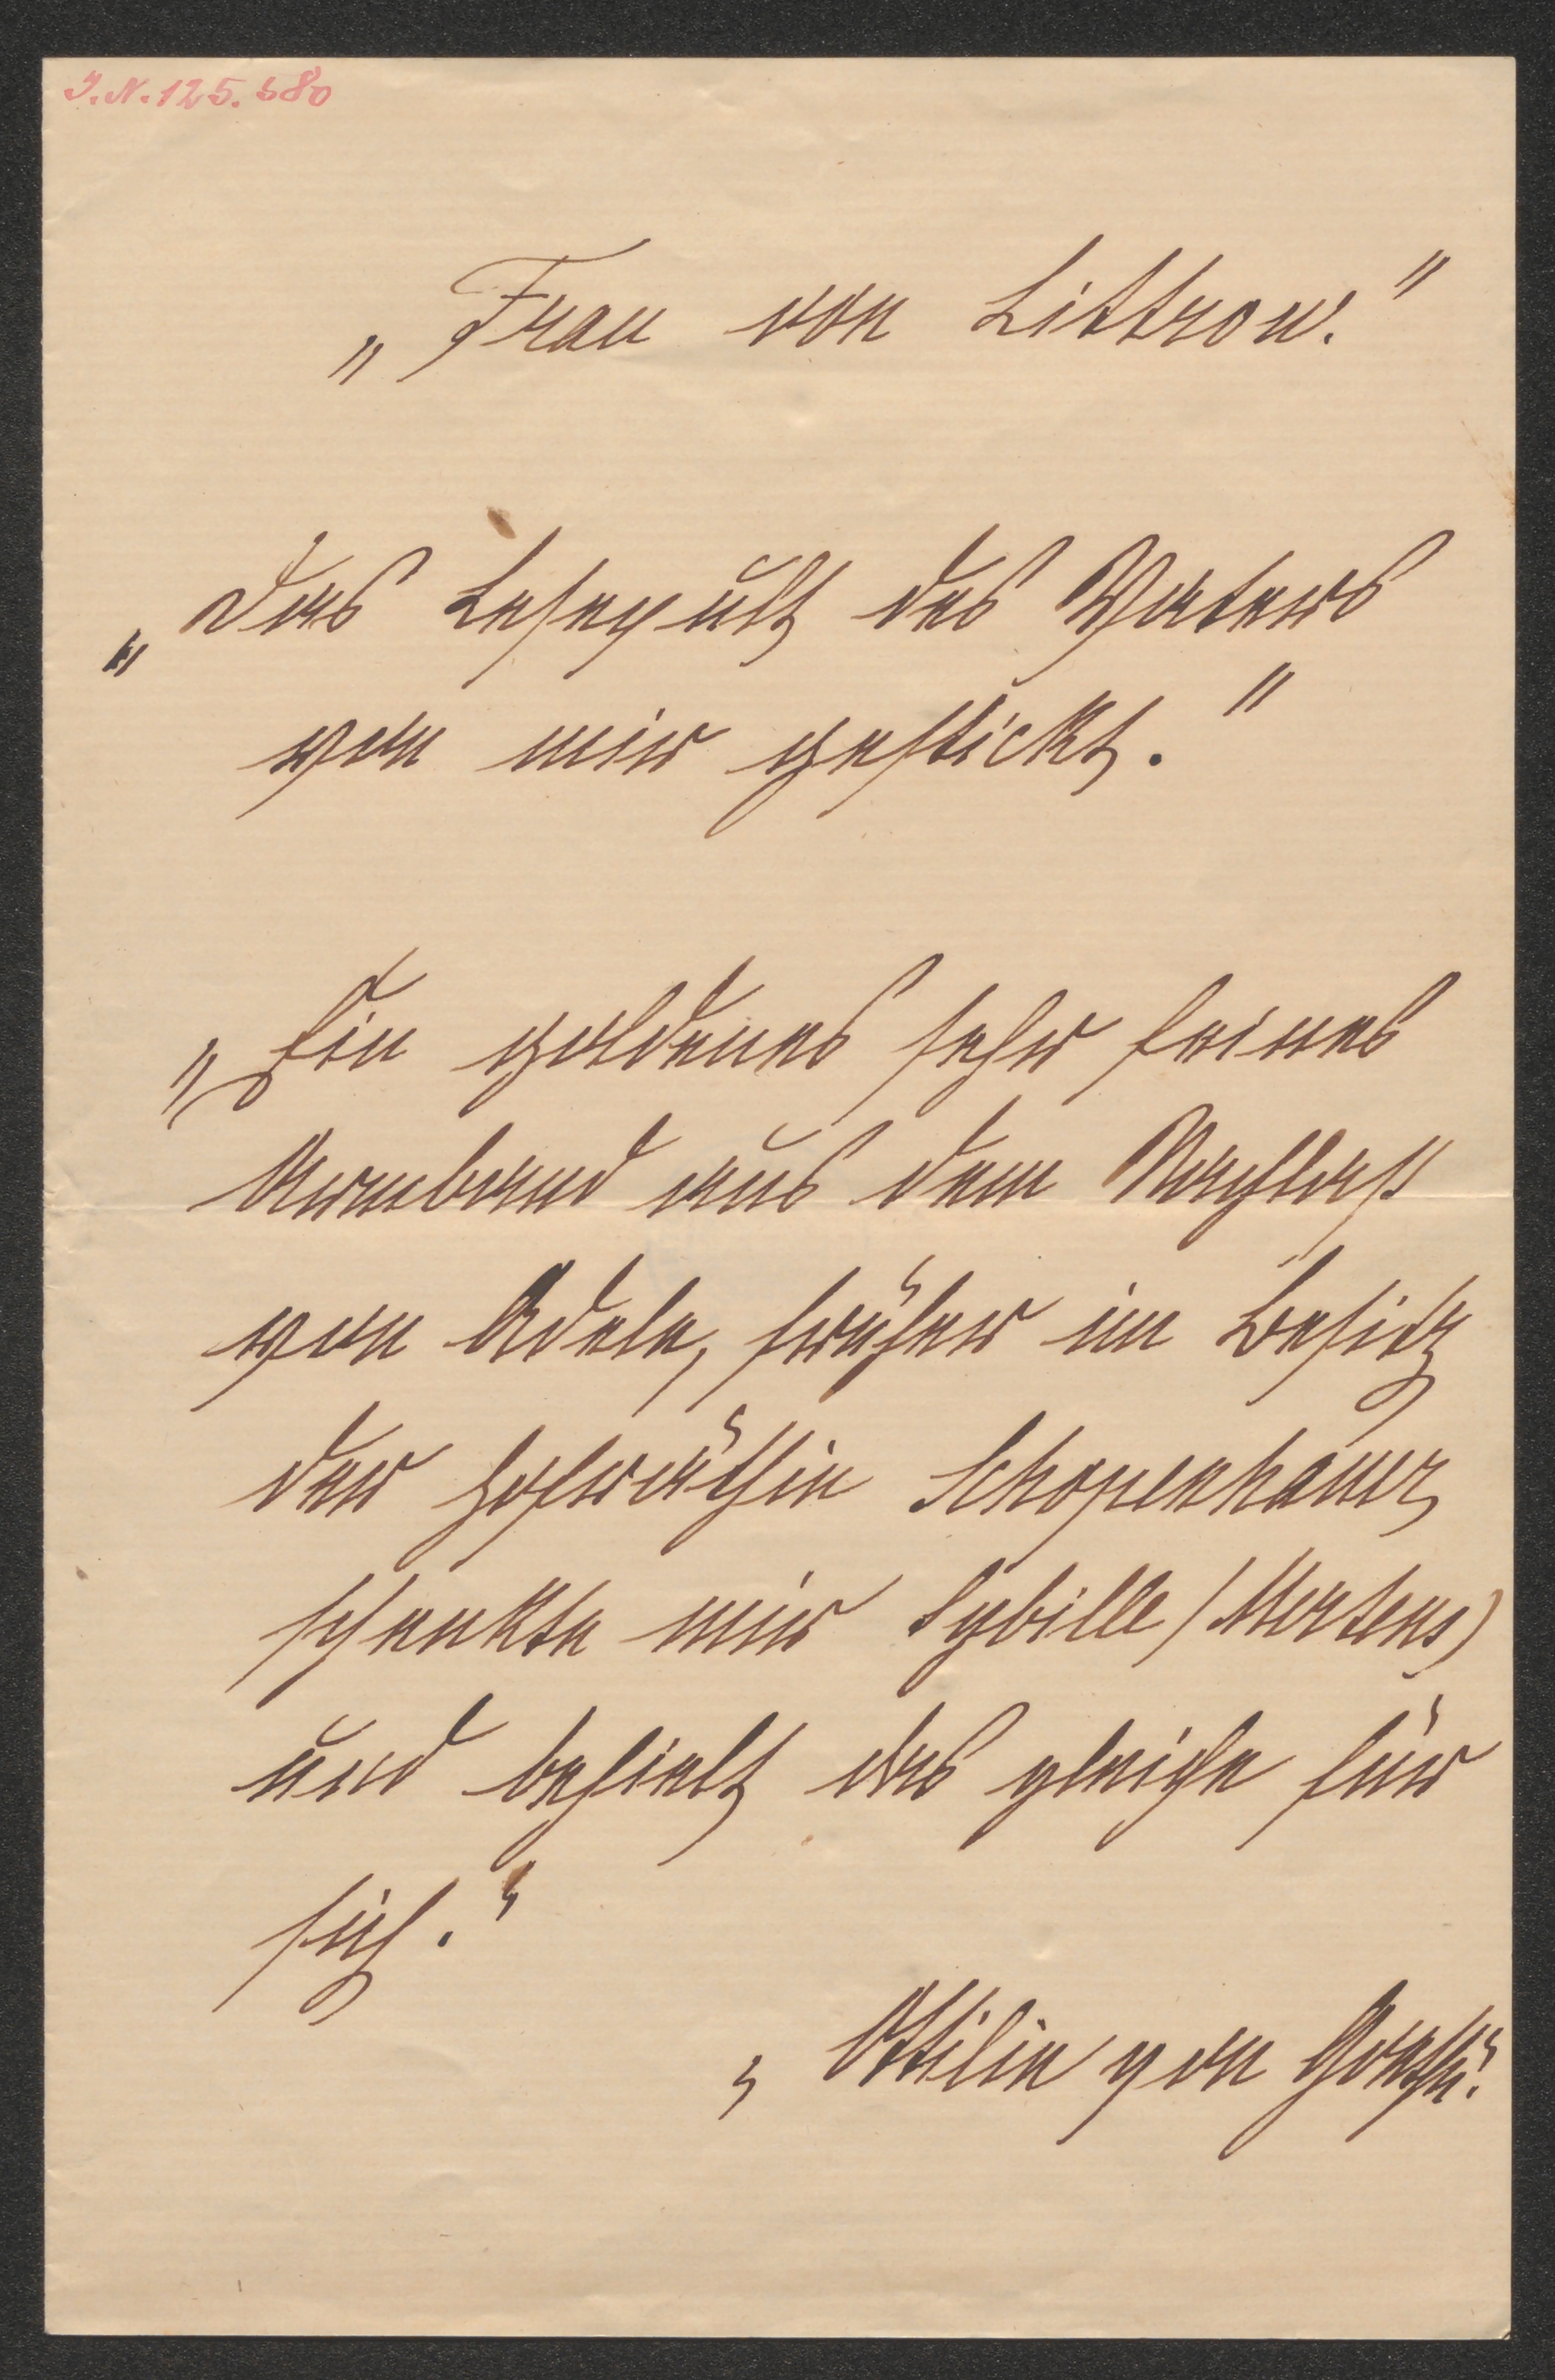 J.N. 125.580
„Frau von Littrow."
„Das Lesepult des Vaters
von mir gestickt."
„Ein goldenes sehr feines
Armband aus dem Nachlass
von Adele, früher im Besitz
der Hofräthin Schopenhauer,
schenkte mir Sybille (Mertens)
und behielt das gleiche für
sich."
„Ottilie von Goethe."